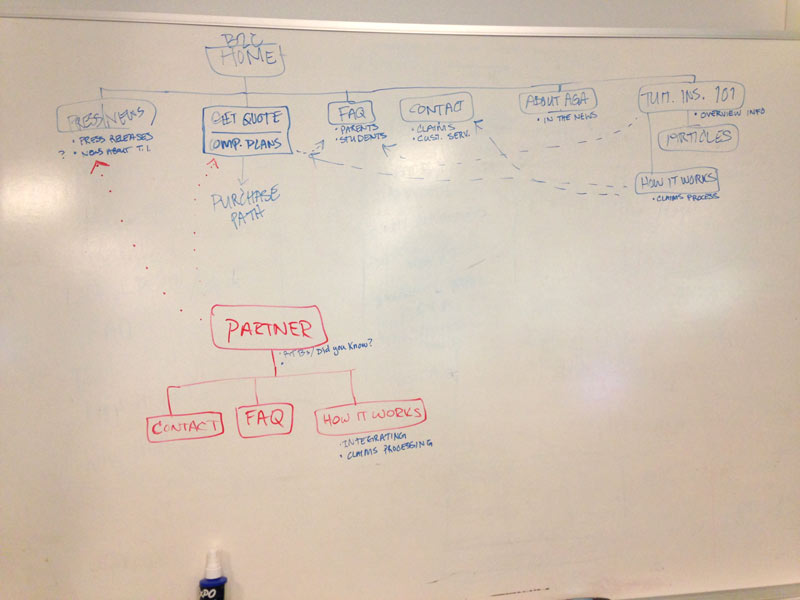 B2C
HOME
PRESS/NEWS
• PRESS RELEASES
? • NEWS ABOUT T.I.
GET QUOTE
COMP. PLANS
PURCHASE
PATH
FAQ
• PARENTS
• STUDENTS
CONTACT
• CLAIMS
• CUST. SERV.
ABOUT AGA
• IN THE NEWS
TUIT. INS. 101
• OVERVIEW INFO
ARTICLES
HOW IT WORKS
• CLAIMS PROCESS
PARTNER
Did you Know?
CONTACT
FAQ
HOW IT WORKS
• INTEGRATING
• CLAIMS PROCESSING
EXPO